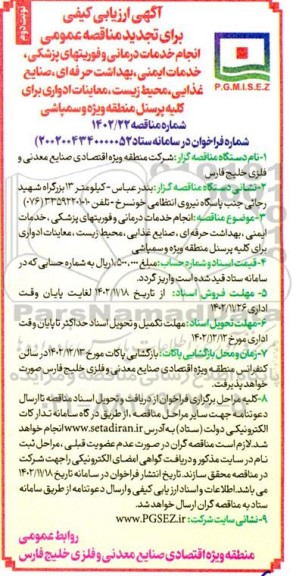 نوبت دوم
آگهی ارزیابی کیفی
برای تجدید مناقصه عمومی
انجام خدمات درمانی و فوریتهای پزشکی،
خدمات ایمنی، بهداشت حرفه ای، صنایع
غذایی، محیط زیست، معاینات ادواری برای
کلیه پرسنل منطقه ویژه و سمپاشی
P.G.M.I.S.E.Z
شماره مناقصه ۱۴۰۲/۲۲
شماره فراخوان در سامانه ستاد ۲۰۰۲۰۰۴۳۴۰۰۰۰۰۵۲)
۱-نام دستگاه مناقصه گزار: شرکت منطقه ویژه اقتصادی صنایع معدنی و
فلزی خلیج فارس
۲-نشانی دستگاه مناقصه گزار: بندرعباس - کیلومتر ۱۳ بزرگراه شهید
رجائی جنب پاسگاه نیروی انتظامی خونسرخ - تلفن ۳۳۵۹۲۲۰۱۰ (۰۷۶)
۳-موضوع مناقصه: انجام خدمات درمانی و فوریتهای پزشکی، خدمات
ایمنی، بهداشت حرفه ای، صنایع غذایی، محیط زیست، معاینات ادواری
برای کلیه پرسنل منطقه ویژه و سمپاشی
۴-قیمت اسناد و شماره حساب: مبلغ ۱.۵۰۰.۰۰۰ ریال به شماره حسابی که در
سامانه ستاد قید شده است واریز گردد.
۵- مهلت فروش اسناد: از تاریخ ۱۴۰۲/۱۱/۱۸ لغایت پایان وقت
اداری ۱۴۰۲/۱۱/۲۶
۶-مهلت تحویل اسناد: مهلت تکمیل و تحویل اسناد حداکثر تا پایان وقت
اداری مورخ ۱۴۰۲/۱۲/۱۲
۷-زمان و محل بازگشایی پاکات: بازگشایی پاکات مورخ ۱۴۰۲/۱۲/۱۳ در سالن
کنفرانس منطقه ویژه اقتصادی صنایع معدنی و فلزی خلیج فارس صورت
خواهد پذیرفت.
۸-کلیه مراحل برگزاری فراخوان از دریافت و تحویل اسناد مناقصه تا ارسال
دعوتنامه جهت سایر مراحل مناقصه، از طریق درگاه سامانه تدارکات
الکترونیکی دولت (ستاد) به آدرس www.setadiran.ir انجام خواهد
شد. لازم است مناقصه گران در صورت عدم عضویت قبلی، مراحل ثبت
نام در سایت مذکور و دریافت گواهی امضای الکترونیکی را جهت شرکت
در مناقصه محقق سازند. تاریخ انتشار فراخوان در سامانه تاریخ ۱۴۰۲/۱۱/۱۸
می باشد. اطلاعات و اسناد ارزیابی کیفی و ارسال دعوتنامه از طریق سامانه
ستاد به مناقصه گران ارسال خواهد شد.
۹-نشانی سایت شرکت: www.PGSEZ.ir
روابط عمومی
منطقه ویژه اقتصادی صنایع معدنی و فلزی خلیج فارس